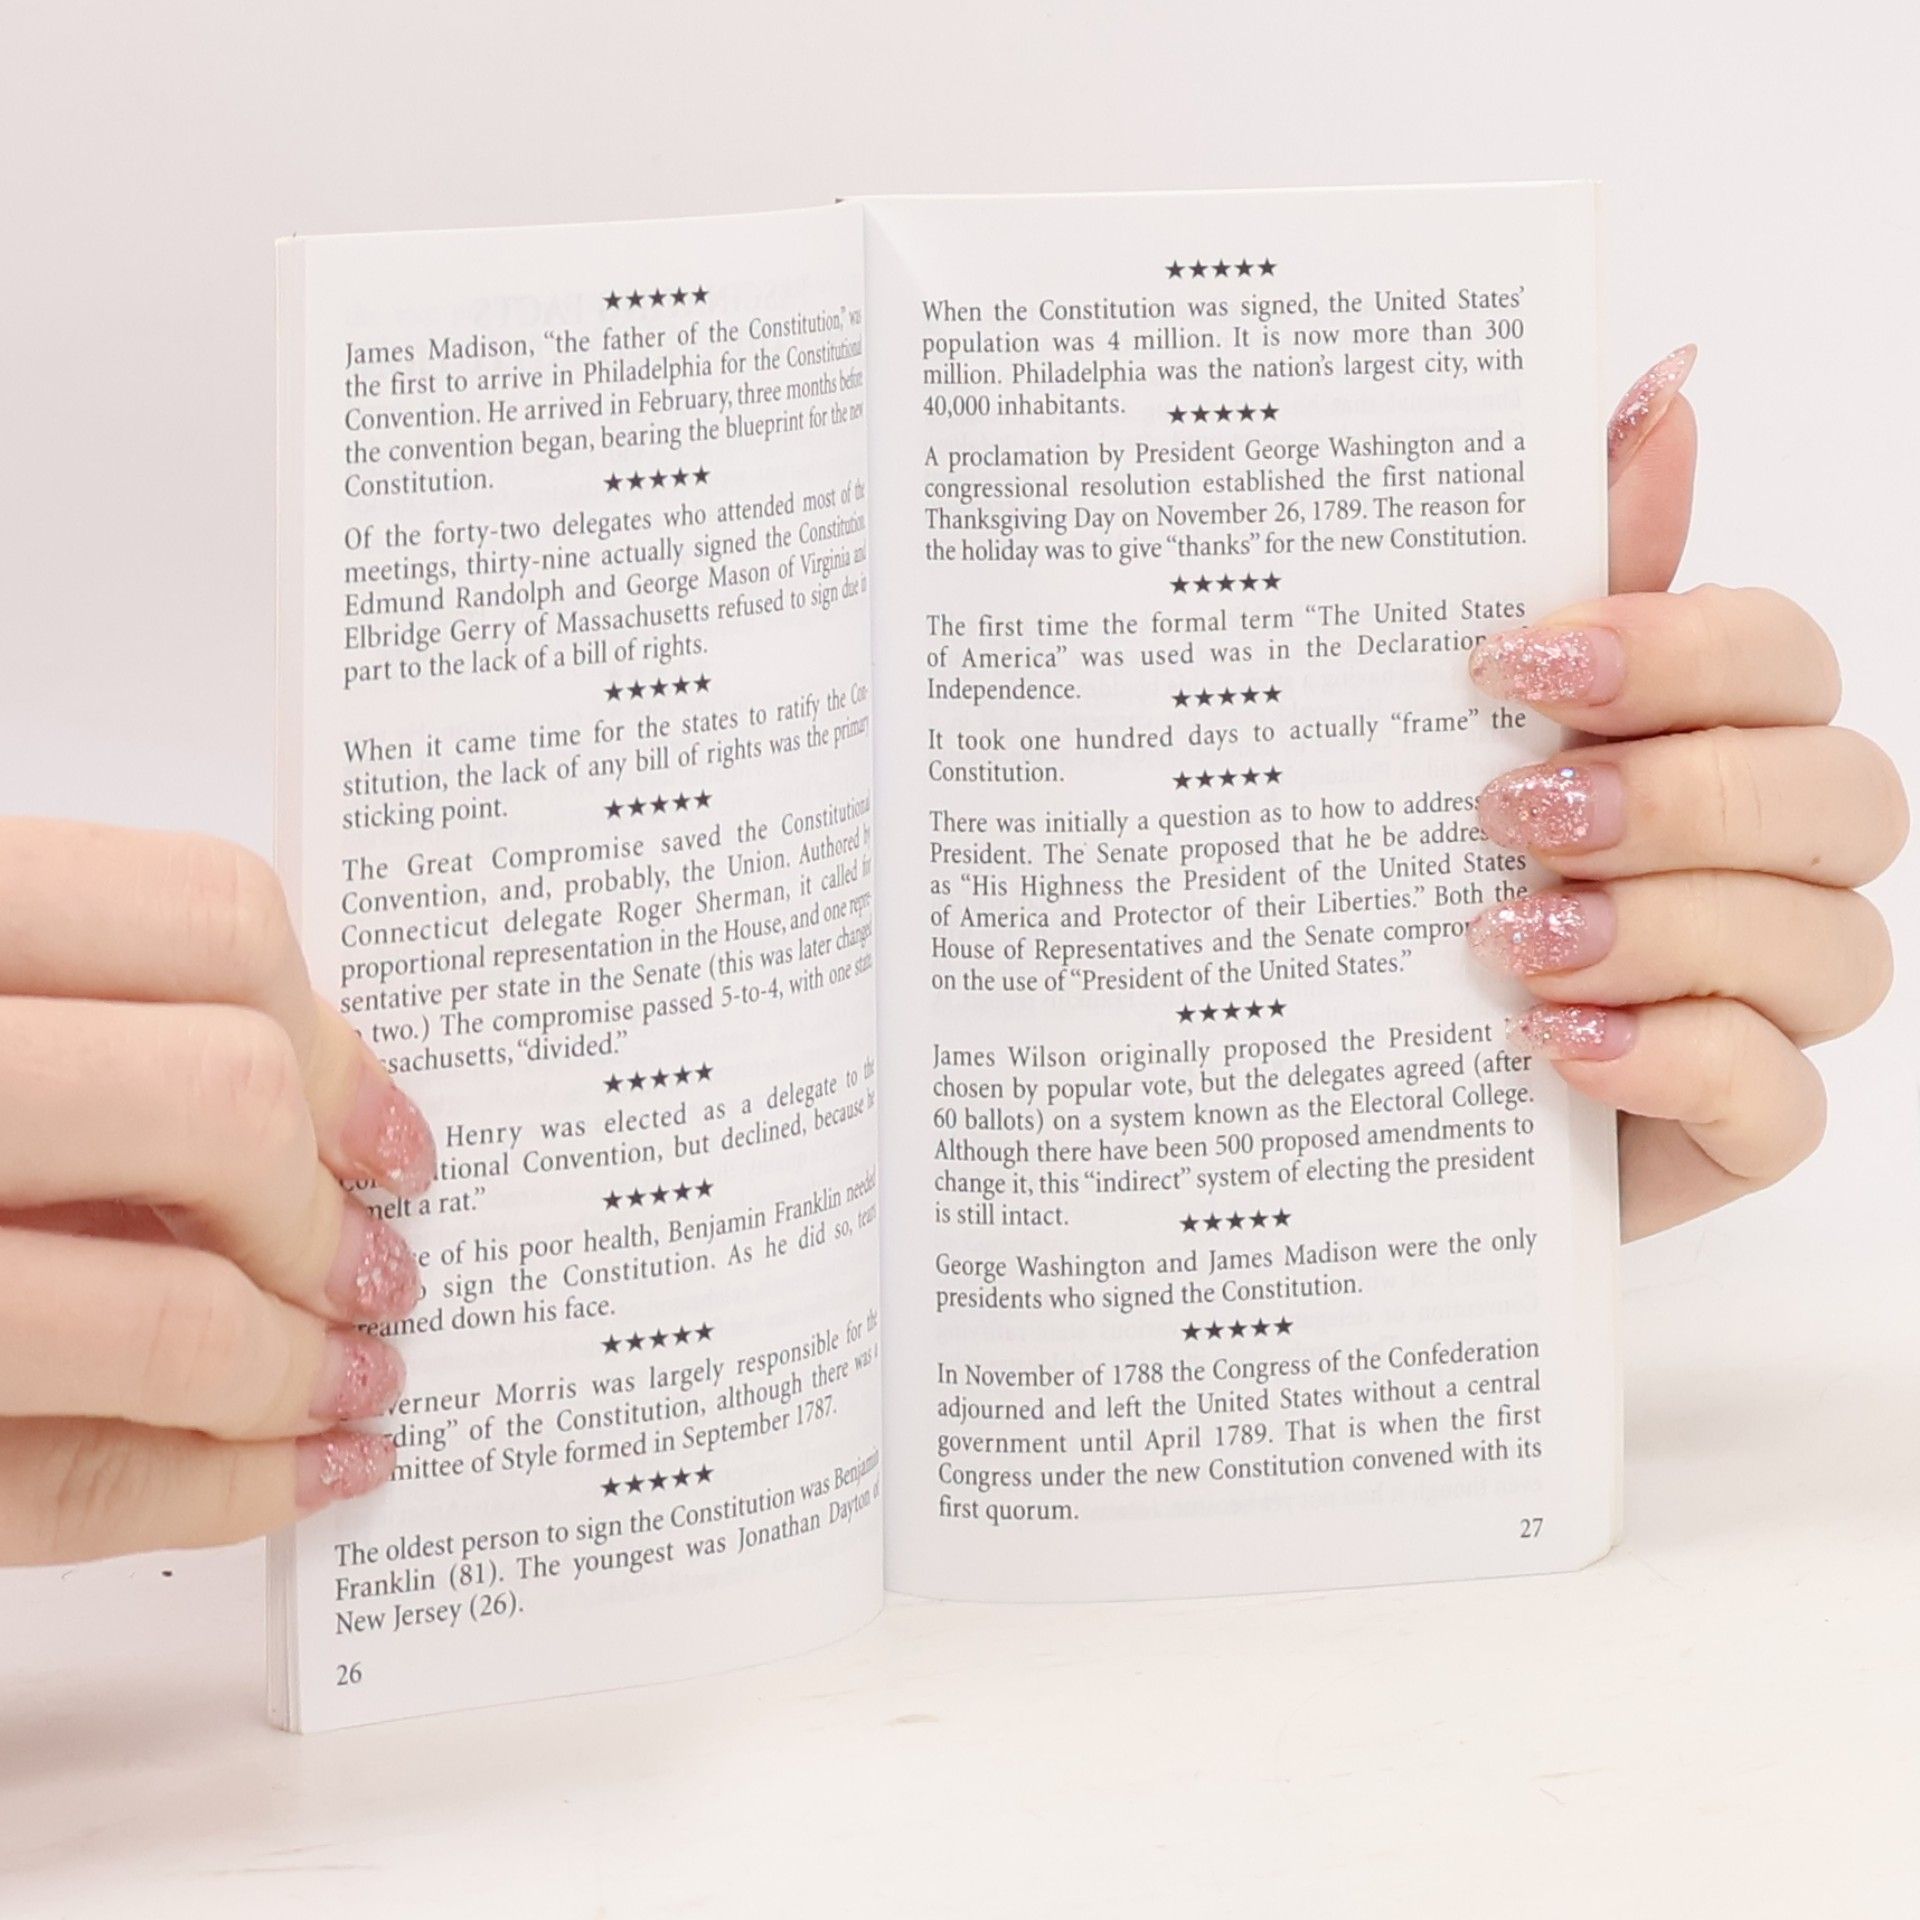 ★★★★★
James Madison, “the father of the Constitution,” was
the first to arrive in Philadelphia for the Constitutional
Convention. He arrived in February, three months before
the convention began, bearing the blueprint for the new
Constitution.
★★★★★
Of the forty-two delegates who attended most of the
meetings, thirty-nine actually signed the Constitution.
Edmund Randolph and George Mason of Virginia and
Elbridge Gerry of Massachusetts refused to sign due in
part to the lack of a bill of rights.
★★★★★
When it came time for the states to ratify the Con-
stitution, the lack of any bill of rights was the primary
sticking point.
★★★★★
The Great Compromise saved the Constitutional
Convention, and, probably, the Union. Authored by
Connecticut delegate Roger Sherman, it called for
proportional representation in the House, and one repre-
sentative per state in the Senate (this was later changed
two.) The compromise passed 5-to-4, with one state,
ssachusetts, “divided.”
★★★★★
Henry was elected as a delegate to the
tional Convention, but declined, because he
melt a rat.”
★★★★★
e of his poor health, Benjamin Franklin needed
sign the Constitution. As he did so, tears
reamed down his face.
★★★★★
verneur Morris was largely responsible for the
ding” of the Constitution, although there was a
mittee of Style formed in September 1787.
★★★★★
The oldest person to sign the Constitution was Benjamin
Franklin (81). The youngest was Jonathan Dayton of
New Jersey (26).
26
★★★★★
When the Constitution was signed, the United States’
population was 4 million. It is now more than 300
million. Philadelphia was the nation’s largest city, with
40,000 inhabitants.
★★★★★
A proclamation by President George Washington and a
congressional resolution established the first national
Thanksgiving Day on November 26, 1789. The reason for
the holiday was to give “thanks” for the new Constitution.
★★★★★
The first time the formal term “The United States
of America” was used was in the Declaration
Independence.
★★★★★
It took one hundred days to actually “frame” the
Constitution.
★★★★★
There was initially a question as to how to address
President. The Senate proposed that he be addre
as “His Highness the President of the United States
of America and Protector of their Liberties.” Both the
House of Representatives and the Senate compro
on the use of “President of the United States.”
★★★★★
James Wilson originally proposed the President
chosen by popular vote, but the delegates agreed (after
60 ballots) on a system known as the Electoral College.
Although there have been 500 proposed amendments to
change it, this “indirect” system of electing the president
is still intact.
★★★★★
George Washington and James Madison were the only
presidents who signed the Constitution.
★★★★★
In November of 1788 the Congress of the Confederation
adjourned and left the United States without a central
government until April 1789. That is when the first
Congress under the new Constitution convened with its
first quorum.
27